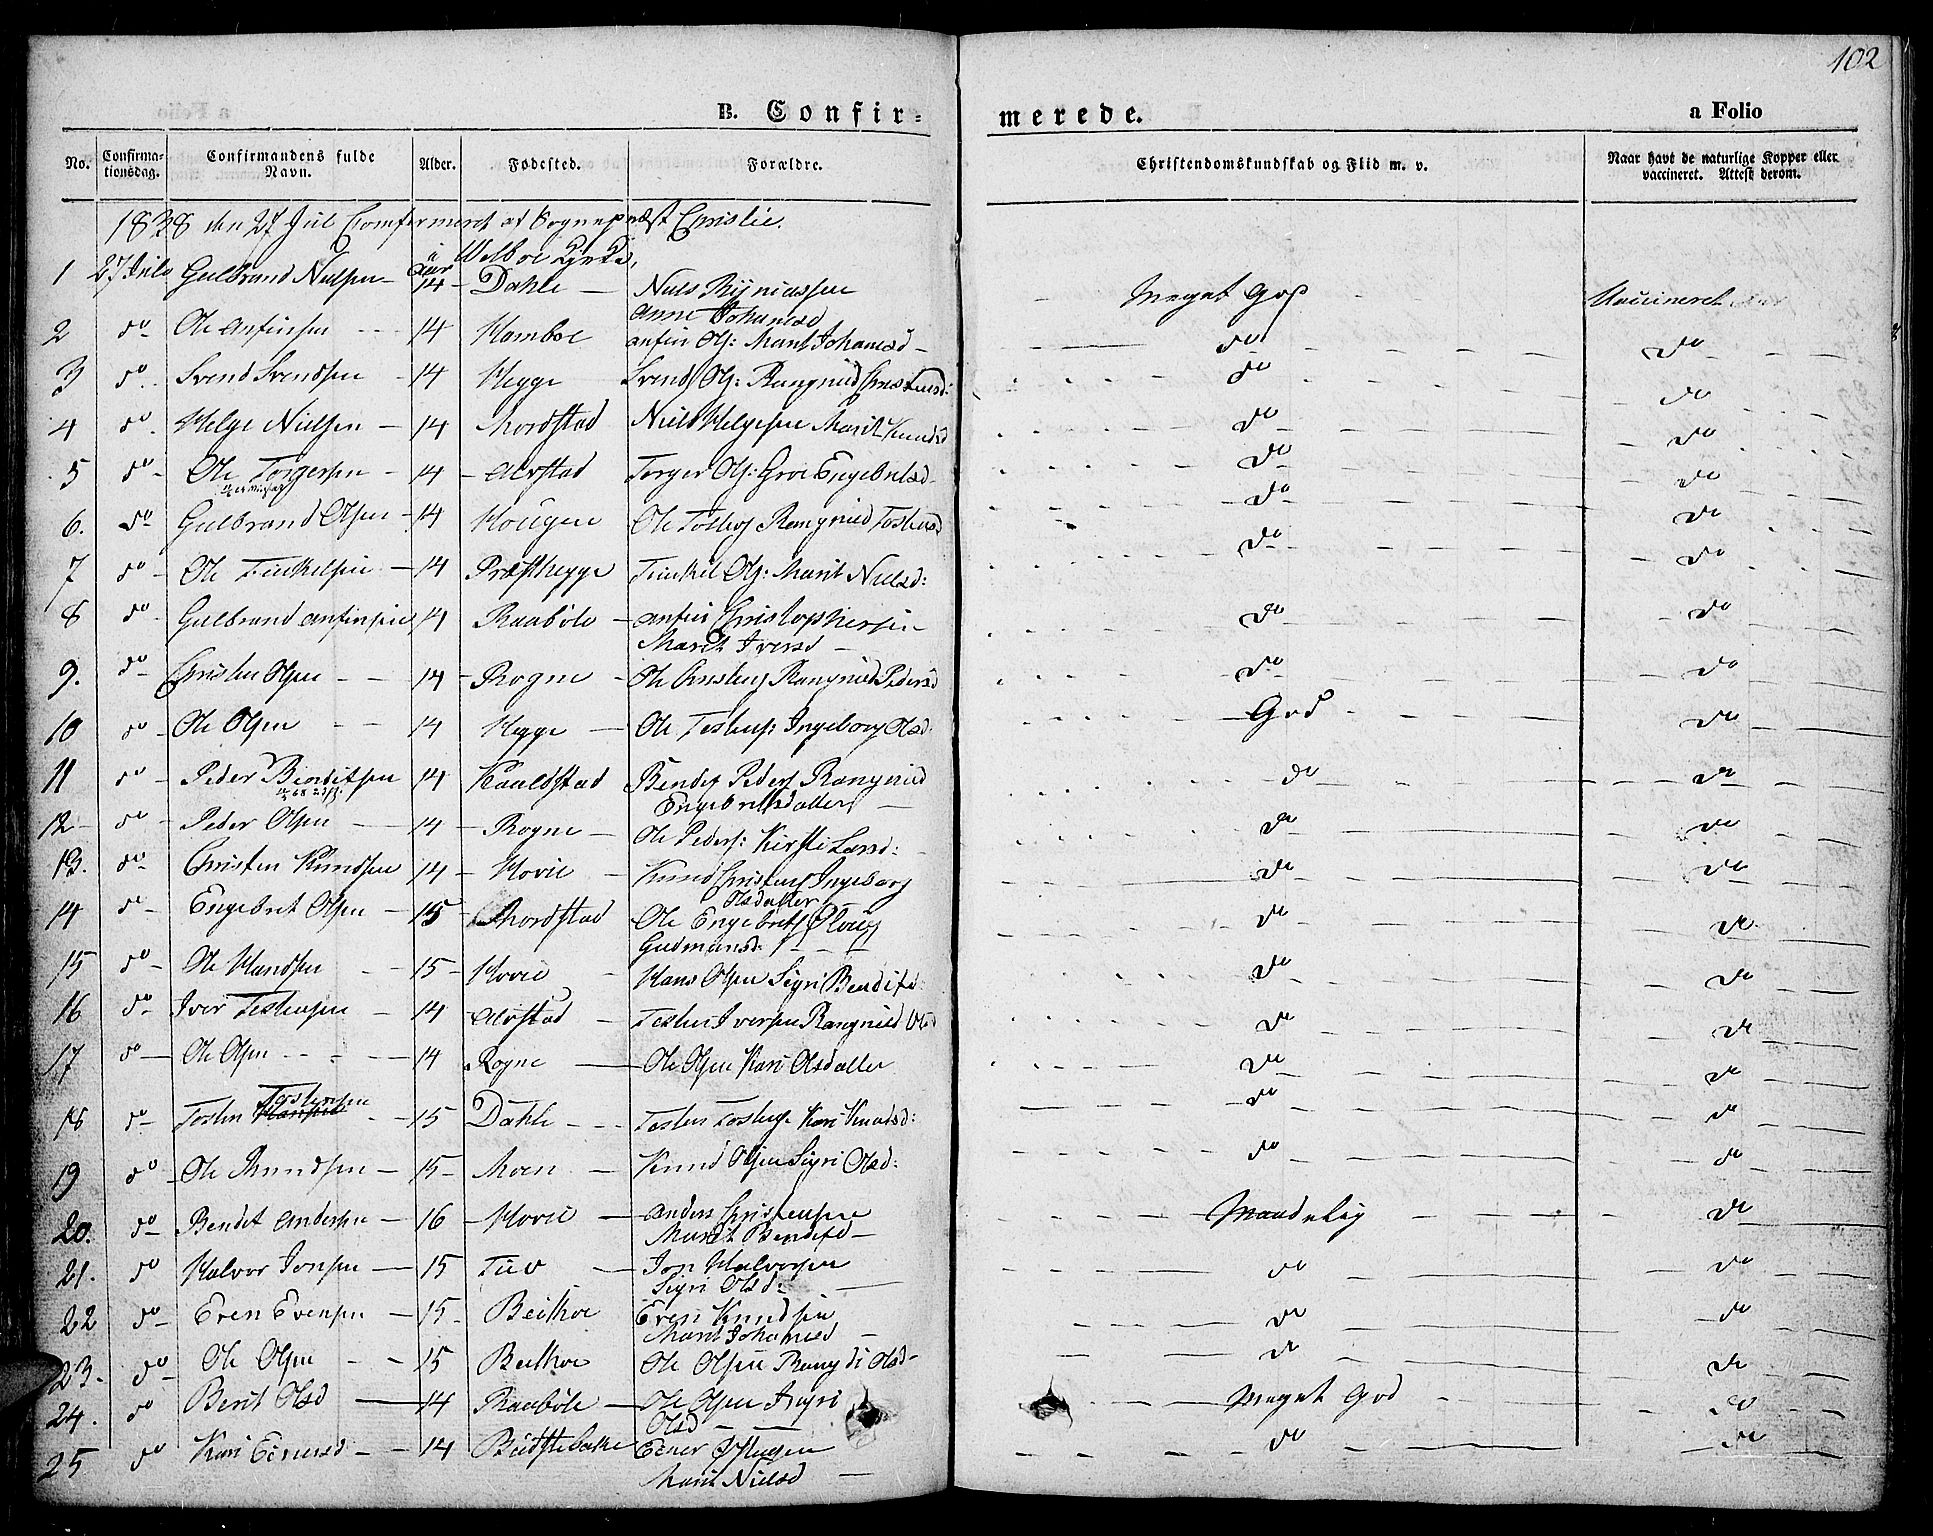 102
B. Confir=
merede.
a Folio
No. Confirmationsdag. Confirmandens fulde Navn. Alder. Fødested. Forældre. Christendomskundskab og Flid m. v. Naar havt de naturlige Kopper eller vaccineret. Attest derom.
1828 den 27 Jul Comfermeret af Sognepræst Christie.
i Kirke,
1 27 Julii Gulbrand Nielsen 14 Dahle Niels Meget God Vaccineret
Anne Johanesd
2 do Ole Anfinsen 14 Anfin Ols: Marit Johanesd do do
3 do Svend Svendsen 14 Hegge Svend Ols: Rangnild do do
4 do Helge Nielsen 14 Nordstad Niels Helgesen Marit Knudsd do do
5 do Ole Torgersen 14 Alvstad Torger Ols: Groe Engebretsd do do
6. do Gulbrand Olsen 14 Hougen Ole Rangnild Tostensd do do
7 do Ole 14 Præsthegge Ols: Marit Nielsd: do do
8 do Gulbrand Anfinsen 14 Raabøle Anfin Christophersen do do
Marit Iversd
9. do Christen Olsen 14 Rogne Ole Christens Rangnild Pedersd do do
10 do Ole Olsen 14 Hegge Ole Tostens: Ingeborg Olsd: God do
11 do Peder Benditsen 14 Kaaldstad Bendit Peders Rangnild do do
Engebretsdatter
12 do Peder Olsen 14 Rogne Ole Peders: Kirsti Larsd: do do
13. do Christen Knudsen 14 Hovie Knud Christens Ingeborg do do
Olsdatter
14 do Engebret Olsen 15 Nordstad Ole Engebrets do do
Gudmunsd:
15 do Ole Hansen 15 Hovie Hans Olsen Sigri Benditsd: do do
16 do Iver Tostensen 14 Alvstad Tosten Iversen Rangnild Olsd do do
17 do Ole Olsen 14 Rogne Ole Olsen Kari Olsdatter do do
Tostensen
18 do Tosten 15 Dahle Tosten Tostens Kari Knudsd: do do
19 do Ole Knudsen 15 Moen Knud Olsen Sigri Olsd: do do
20. do Bendet Andersen 16 Hovie Anders Christensen Maadelig do
Marit Benditsd
21. do Halvor Jonsen 15 Jon Halvorsen do do
Sigri Olsd:
22 do Even Evensen 15 Beithoe Even Knudsen do do
Marit Johanesd
23. do Ole Olsen 15 Beithoe Ole Olsen Rangdi Olsd do do
24. do Berit Olsd 14 Raabøle Ole Olsen Meget God do
Olsd
25 do Kari Einersd 14 Einer do do
Marit Nielsd